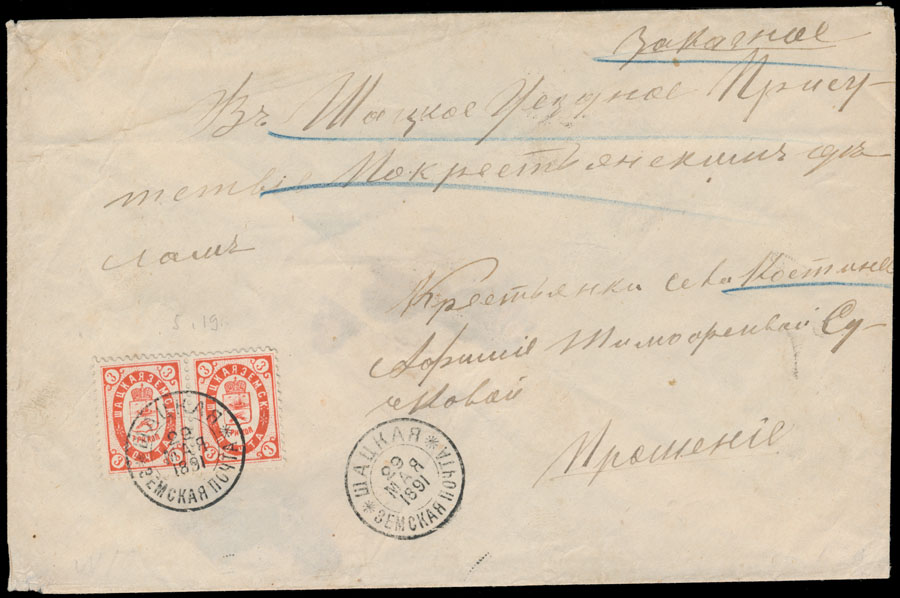 Заказное
Въ Шацкое Уездное Прису-
тствіе Покрестьянскимъ дѣ
ламъ
Крестьянки села Костина
Тимофеевой Су-
Прошеніе
5.19.
3 3 3 3
ШАЦКАЯ ЗЕМСК ПОЧТА
ШАЦКАЯ
29
МАЯ
1891
ЗЕМСКАЯ ПОЧТА
ШАЦКАЯ
29
МАЯ
1891
ЗЕМСКАЯ ПОЧТА